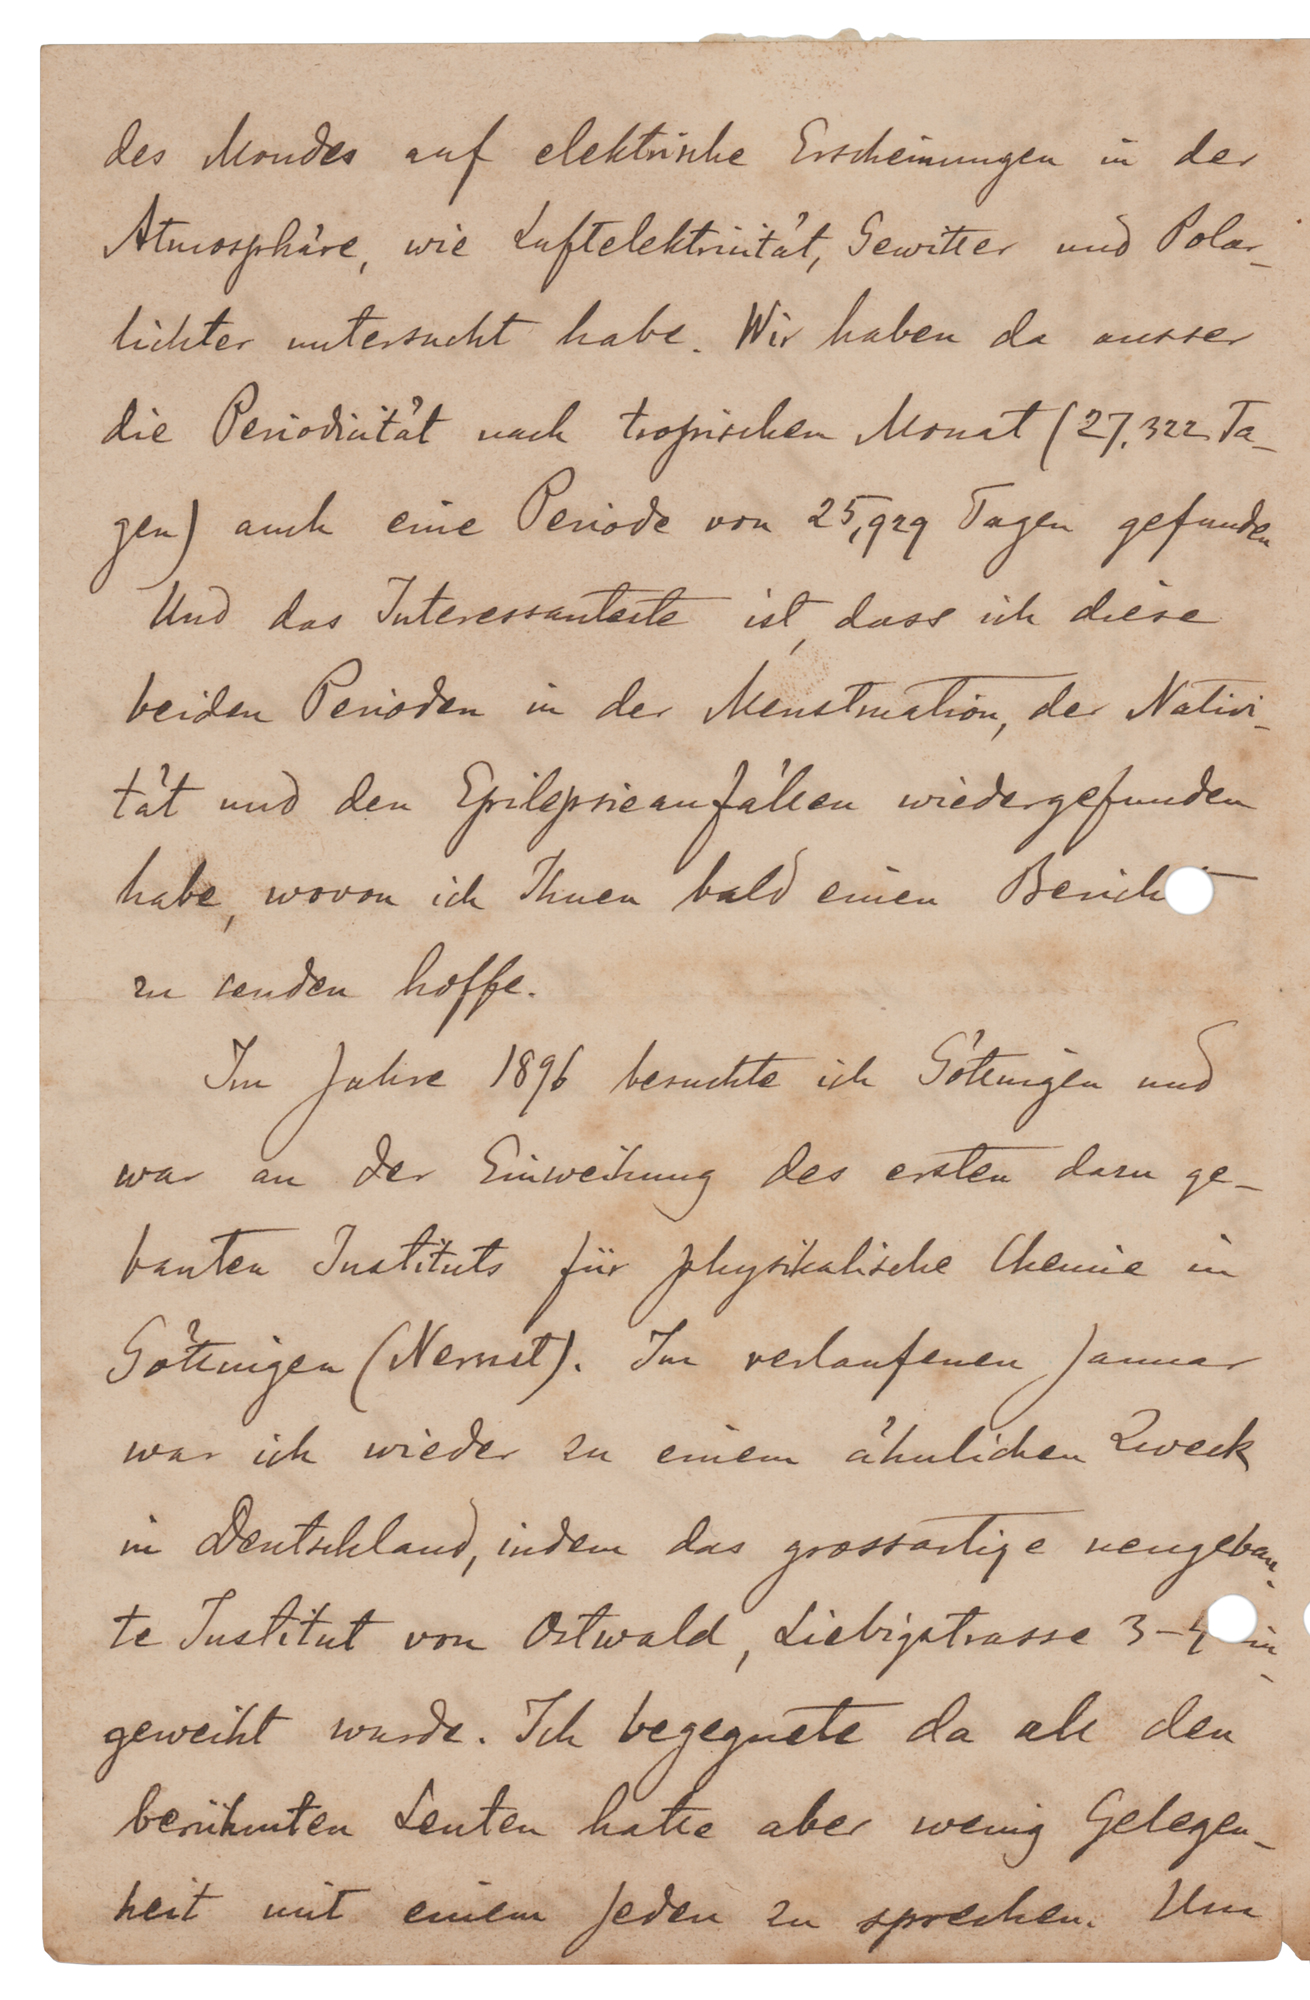 des Mondes auf elektrische Erscheinungen in der
Atmosphäre, wie Luftelektricität, Gewitter und Polar-
lichter untersucht habe. Wir haben da ausser
die Periodicität nach tropischen Monat (27,322 Ta-
gen) auch eine Periode von 25,929 Tagen gefunden
Und das Interessanteste ist, dass ich diese
beiden Perioden in der Menstruation, der Nativi-
tät und den Epilepsieanfällen wiedergefunden
habe, wovon ich Ihnen bald einen Bericht
zu senden hoffe.
Im Jahre 1896 besuchte ich Göttingen und
war an der Einweihung des ersten dazu ge-
bauten Instituts für physikalische Chemie in
Göttingen (Nernst). Im verlaufenen Januar
war ich wieder zu einem ähnlichen Zweck
in Deutschland, indem das grossartige neugebau-
te Institut von Ostwald, Liebigstrasse 3-4 ein-
geweiht wurde. Ich begegnete da all den
berühmten Leuten hatte aber wenig Gelegen-
heit mit einem jeden zu sprechen. Um